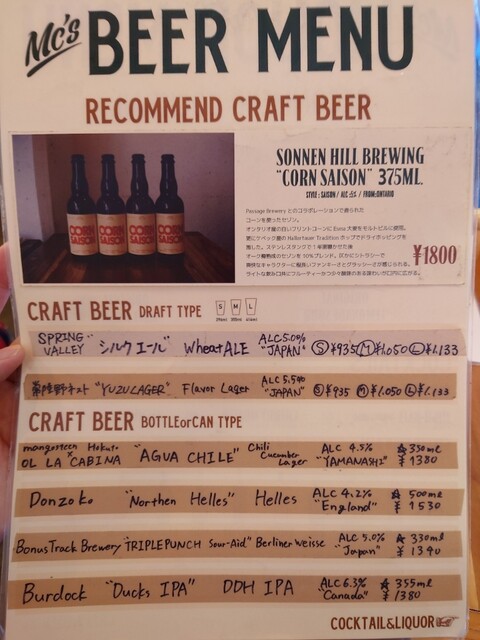 Mc's BEER MENU
RECOMMEND CRAFT BEER
SONNEN HILL BREWING
"CORN SAISON" 375ML.
STYLE : SAISON / ALC / FROM:ONTARIO
CORN SAISON
Passage Brewery とのコラボレーションで造られた
コーンを使ったセゾン。
¥1800
CRAFT BEER DRAFT TYPE S M L
SPRING VALLEY シルクエール" Wheat ALE ALC 5.0% "JAPAN" Ⓢ¥935 Ⓜ¥1.050 Ⓛ¥1.133
常陸野ネスト "YUZU LAGER" Flavor Lager ALC 5.5% "JAPAN" Ⓢ¥935 Ⓜ¥1.050 Ⓛ¥1.133
CRAFT BEER BOTTLEorCAN TYPE
OL LA CABINA "AGUA CHILE" Chili Cucumber Lager ALC 4.5% "YAMANASHI" 350ml ¥1380
Donzoko "Northen Helles" Helles ALC 4.2% "England" 500ml ¥1530
BonusTrack Brewery "TRIPLE PUNCH Sour-Aid" Berliner Weisse ALC 5.0% "Japan" 330ml ¥1390
Burdock "Ducks IPA" DDH IPA ALC 6.3% "Canada" 355ml ¥1380
COCKTAIL&LIQUOR